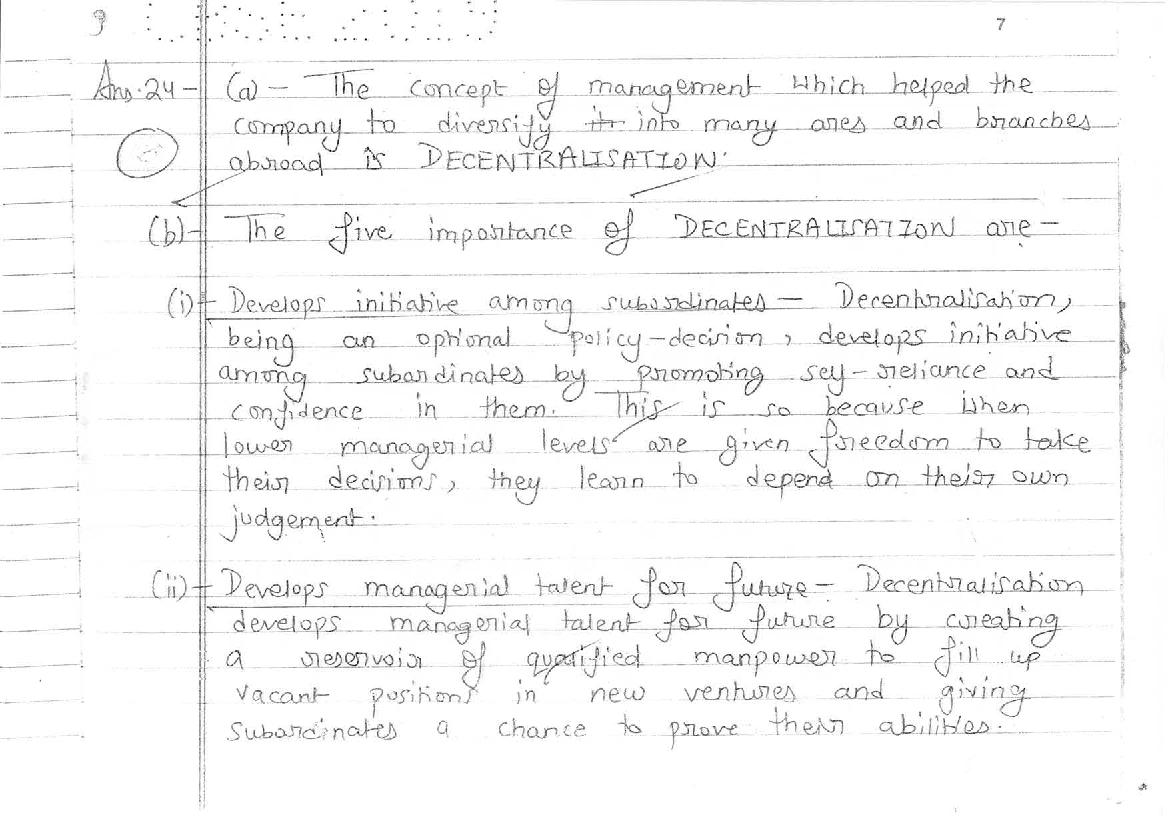 9
7
Ans.24 - (a) - The concept of management which helped the
company to diversify it into many ares and branches
abroad is DECENTRALISATION.
(b) - The five importance of DECENTRALISATION are -
(i) - Develops initiative among subordinates - Decentralisation,
being an optional policy-decision, develops initiative
among subordinates by promoting sey-reliance and
confidence in them. This is so because when
lower managerial levels are given freedom to take
their decisions, they learn to depend on their own
judgement.
(ii) - Develops managerial talent for future - Decentralisation
develops managerial talent for future by creating
a reservoir of qualified manpower to fill up
vacant positions in new ventures and giving
subordinates a chance to prove their abilities.